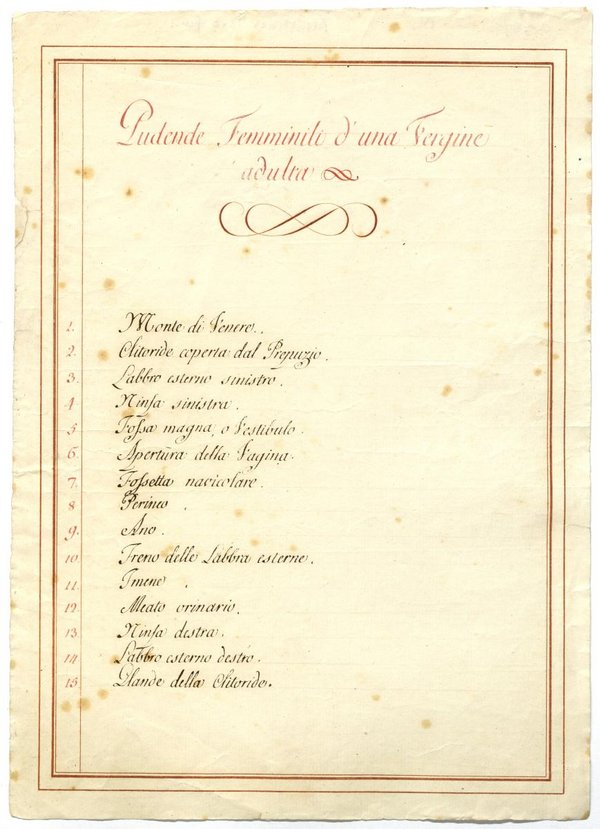 Pudende Femminili d'una Vergine
adulta
1. Monte di Venere.
2. Clitoride coperta dal Prepuzio.
3. Labbro esterno sinistro.
4 Ninfa sinistra.
5 Fossa magna, o Vestibulo.
6. Apertura della Vagina.
7. Fossetta navicolare.
8 Perineo.
9. Ano.
10. Freno delle Labbra esterne.
11. Imene.
12. Meato orinario.
13. Ninfa destra.
14 Labbro esterno destro.
15. Glande della Clitoride.